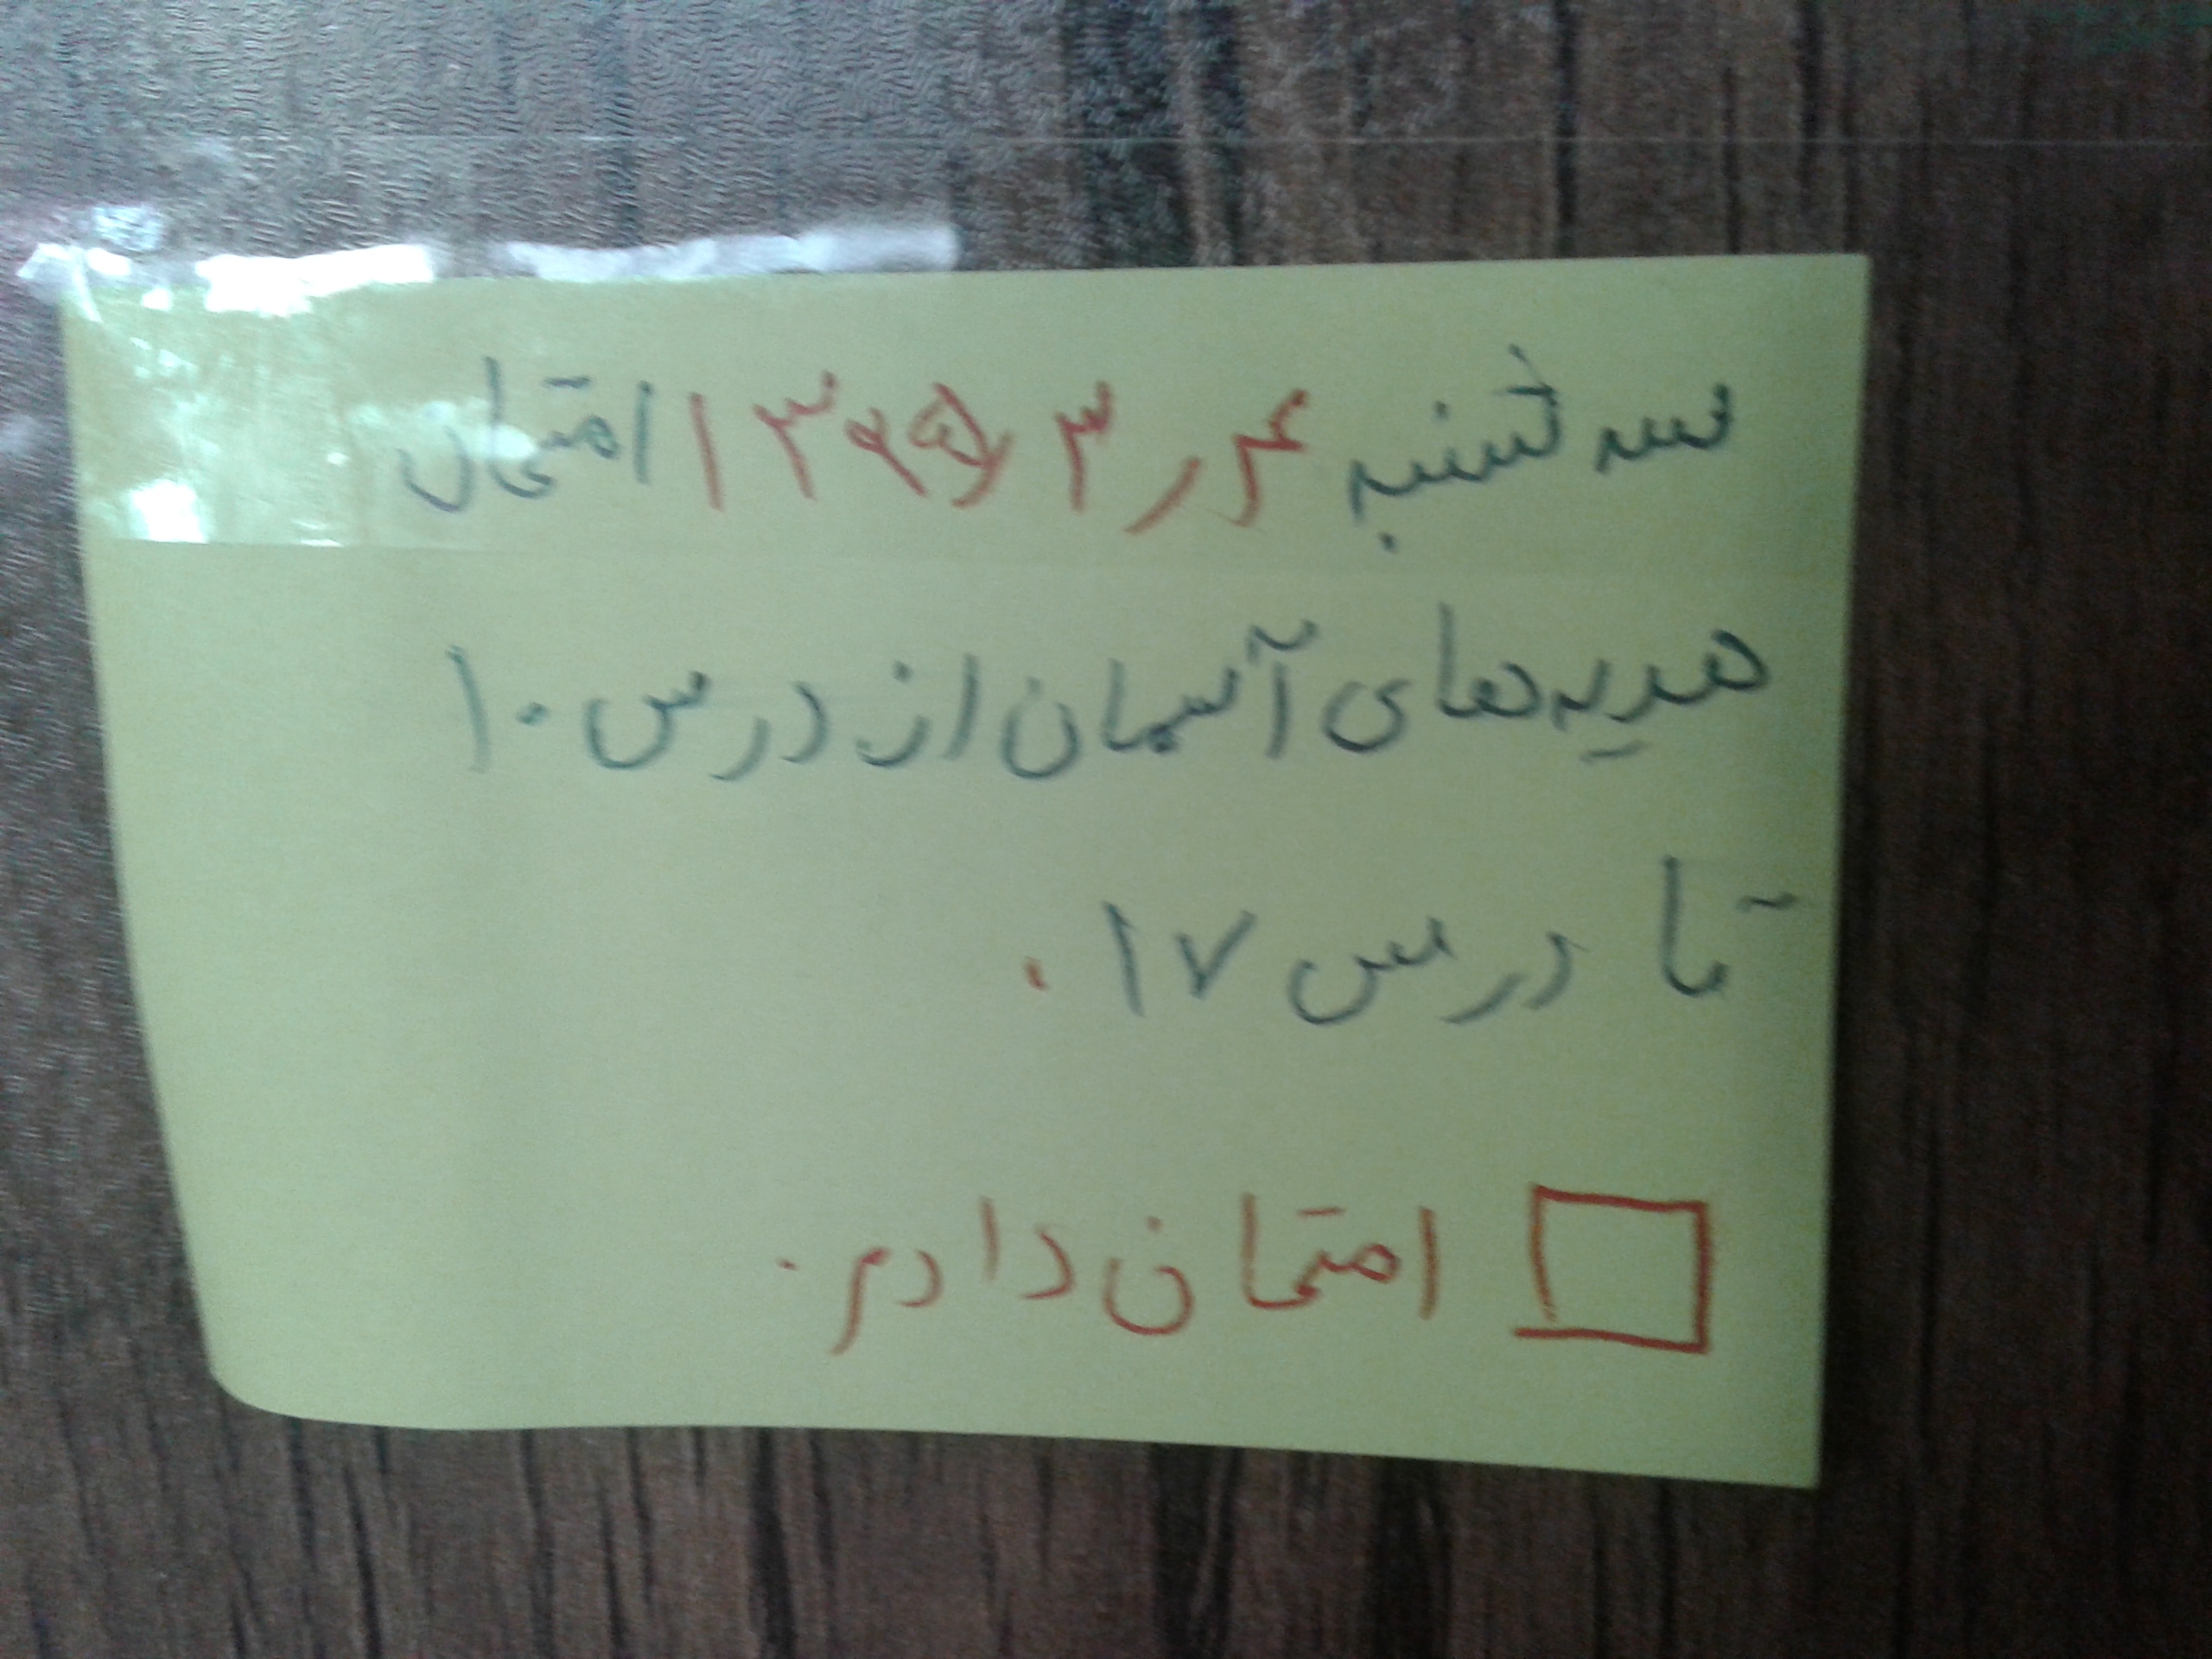 سه شنبه ۴ر۳ر۱۳۹۵ امتحان
هدیه‌های آسمان از درس ۱۰
تا درس ۱۷.
امتحان دادم.